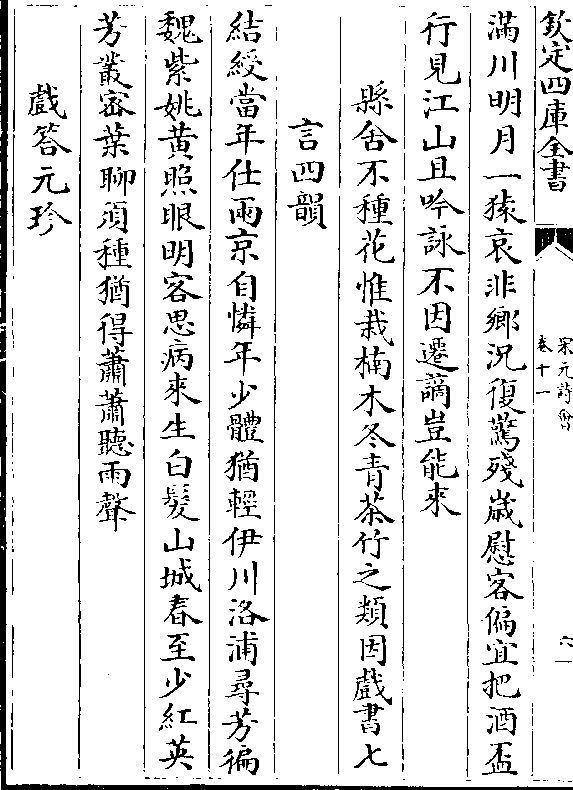 欽定四庫全書
宋元詩會
卷十一
六
滿川明月一猿哀非鄉況復驚殘歲慰客偏宜把酒盃
行見江山且吟詠不因遷謫豈能來
縣舍不種花惟栽楠木冬青茶竹之類因戲書七
言四韻
結綬當年仕兩京自憐年少體猶輕伊川洛浦尋芳徧
魏紫姚黃照眼明客思病來生白髮山城春至少紅英
芳叢密葉聊須種猶得蕭蕭聽雨聲
戲答元珍